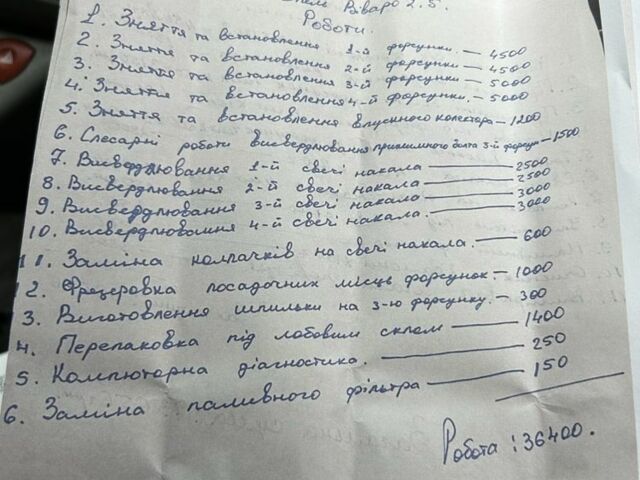 Опель Віваро 2.5.
Роботи.
1. Зняття та встановлення 1-й форсунки. — 4500
2. Зняття та встановлення 2-й форсунки — 4500
3. Зняття та встановлення 3-й форсунки — 5000
4. Зняття та встановлення 4-й форсунки. — 5000
5. Зняття та встановлення впускного колектора — 1200
6. Слесарні роботи висвердлювання прижимного болта 3-й форсун — 1500
7. Висвердлювання 1-й свечі накала — 2500
8. Висвердлювання 2-й свечі накала — 2500
9. Висвердлювання 3-й свечі накала — 3000
10. Висвердлювання 4-й свечі накала. — 3000
11. Заміна колпачків на свечі накала. — 600
2. Фрезеровка посадочних місць форсунок. — 1000
3. Виготовлення шпильки на 3-ю форсунку. — 300
4. Перепаковка під лобовим склом — 1400
5. Компюторна діагностика. — 250
6. Заміна паливного фільтра — 150
Робота : 36400.